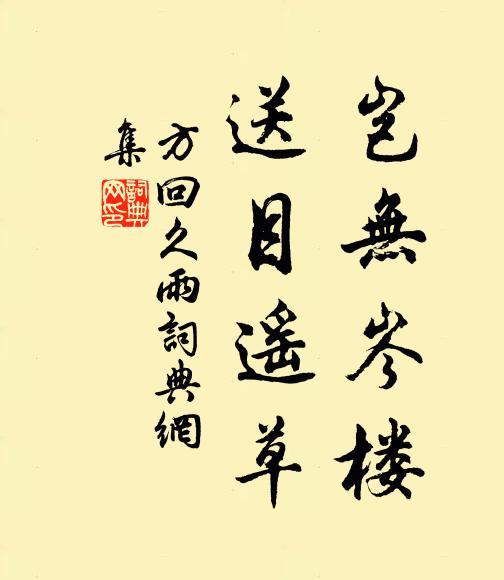 岂無岑楼
送目遥草
方回久雨詞典網
集
詞典
网印